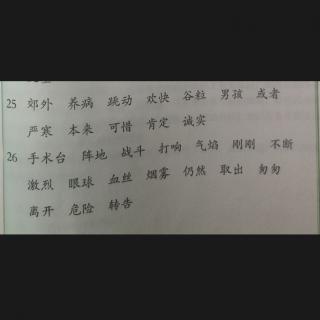 25 郊外 养病 跳动 欢快 谷粒 男孩 或者
严寒 本来 可惜 肯定 诚实
26 手术台 阵地 战斗 打响 气焰 刚刚 不断
激烈 眼球 血丝 烟雾 仍然 取出 匆匆
离开 危险 转告